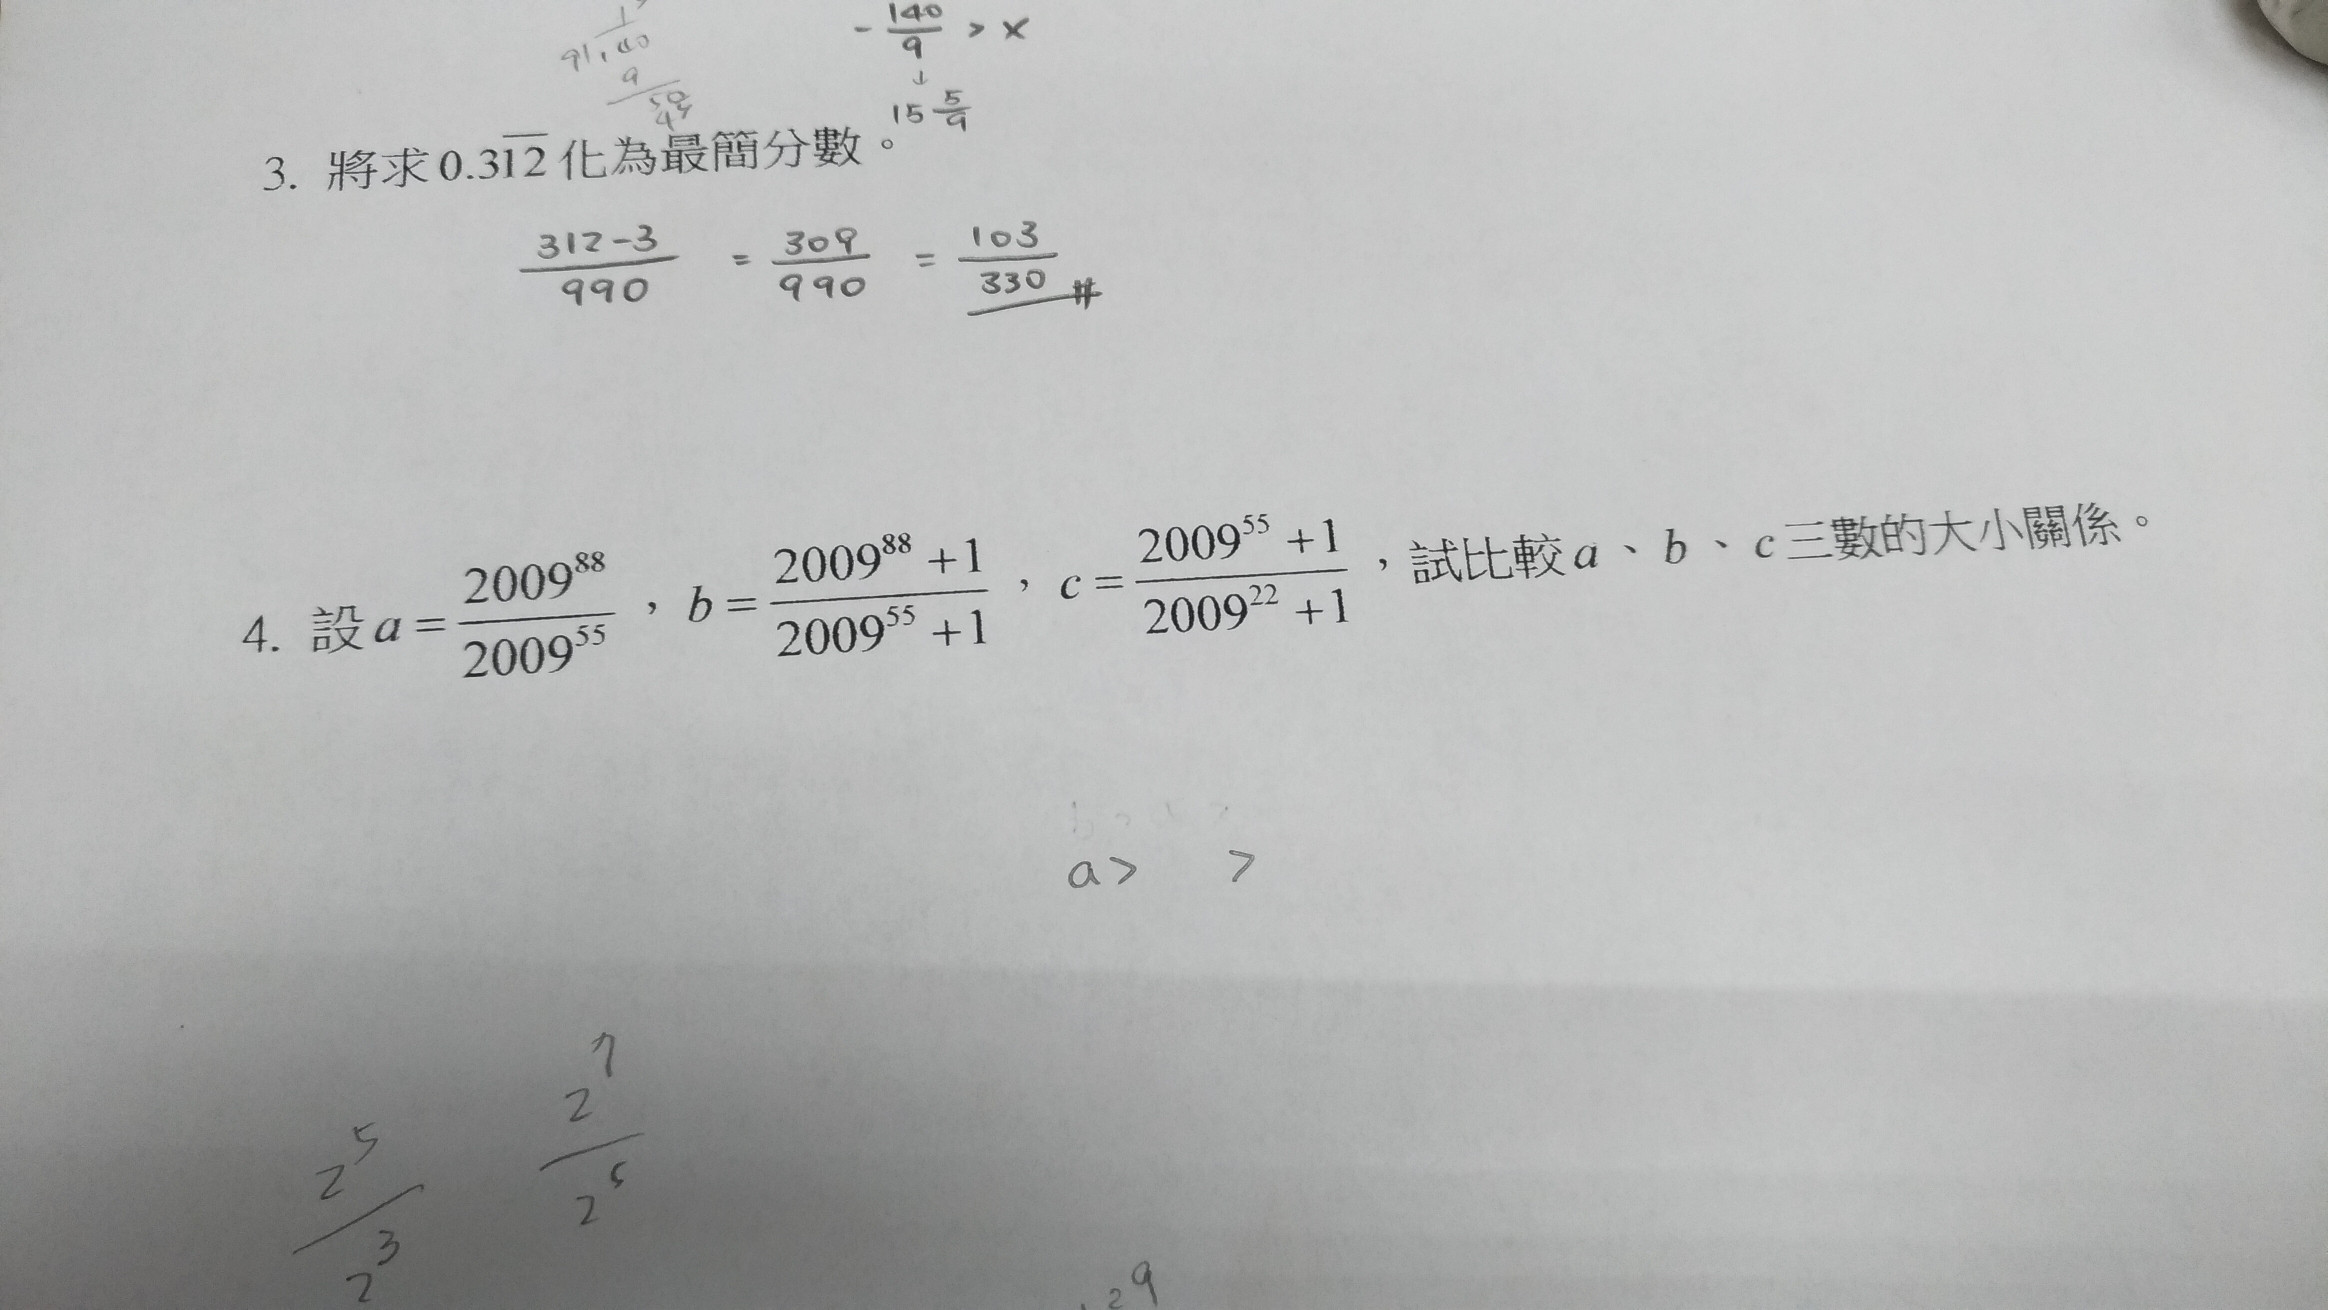 - 140/9 > x
↓
15 5/9
3. 將求 0.31̅2̅ 化為最簡分數。
312-3/990 = 309/990 = 103/330 #
4. 設 a = 2009⁸⁸/2009⁵⁵，b = (2009⁸⁸+1)/(2009⁵⁵+1)，c = (2009⁵⁵+1)/(2009²²+1)，試比較 a、b、c 三數的大小關係。
a > >
2⁵/2³ 2⁷/2⁵